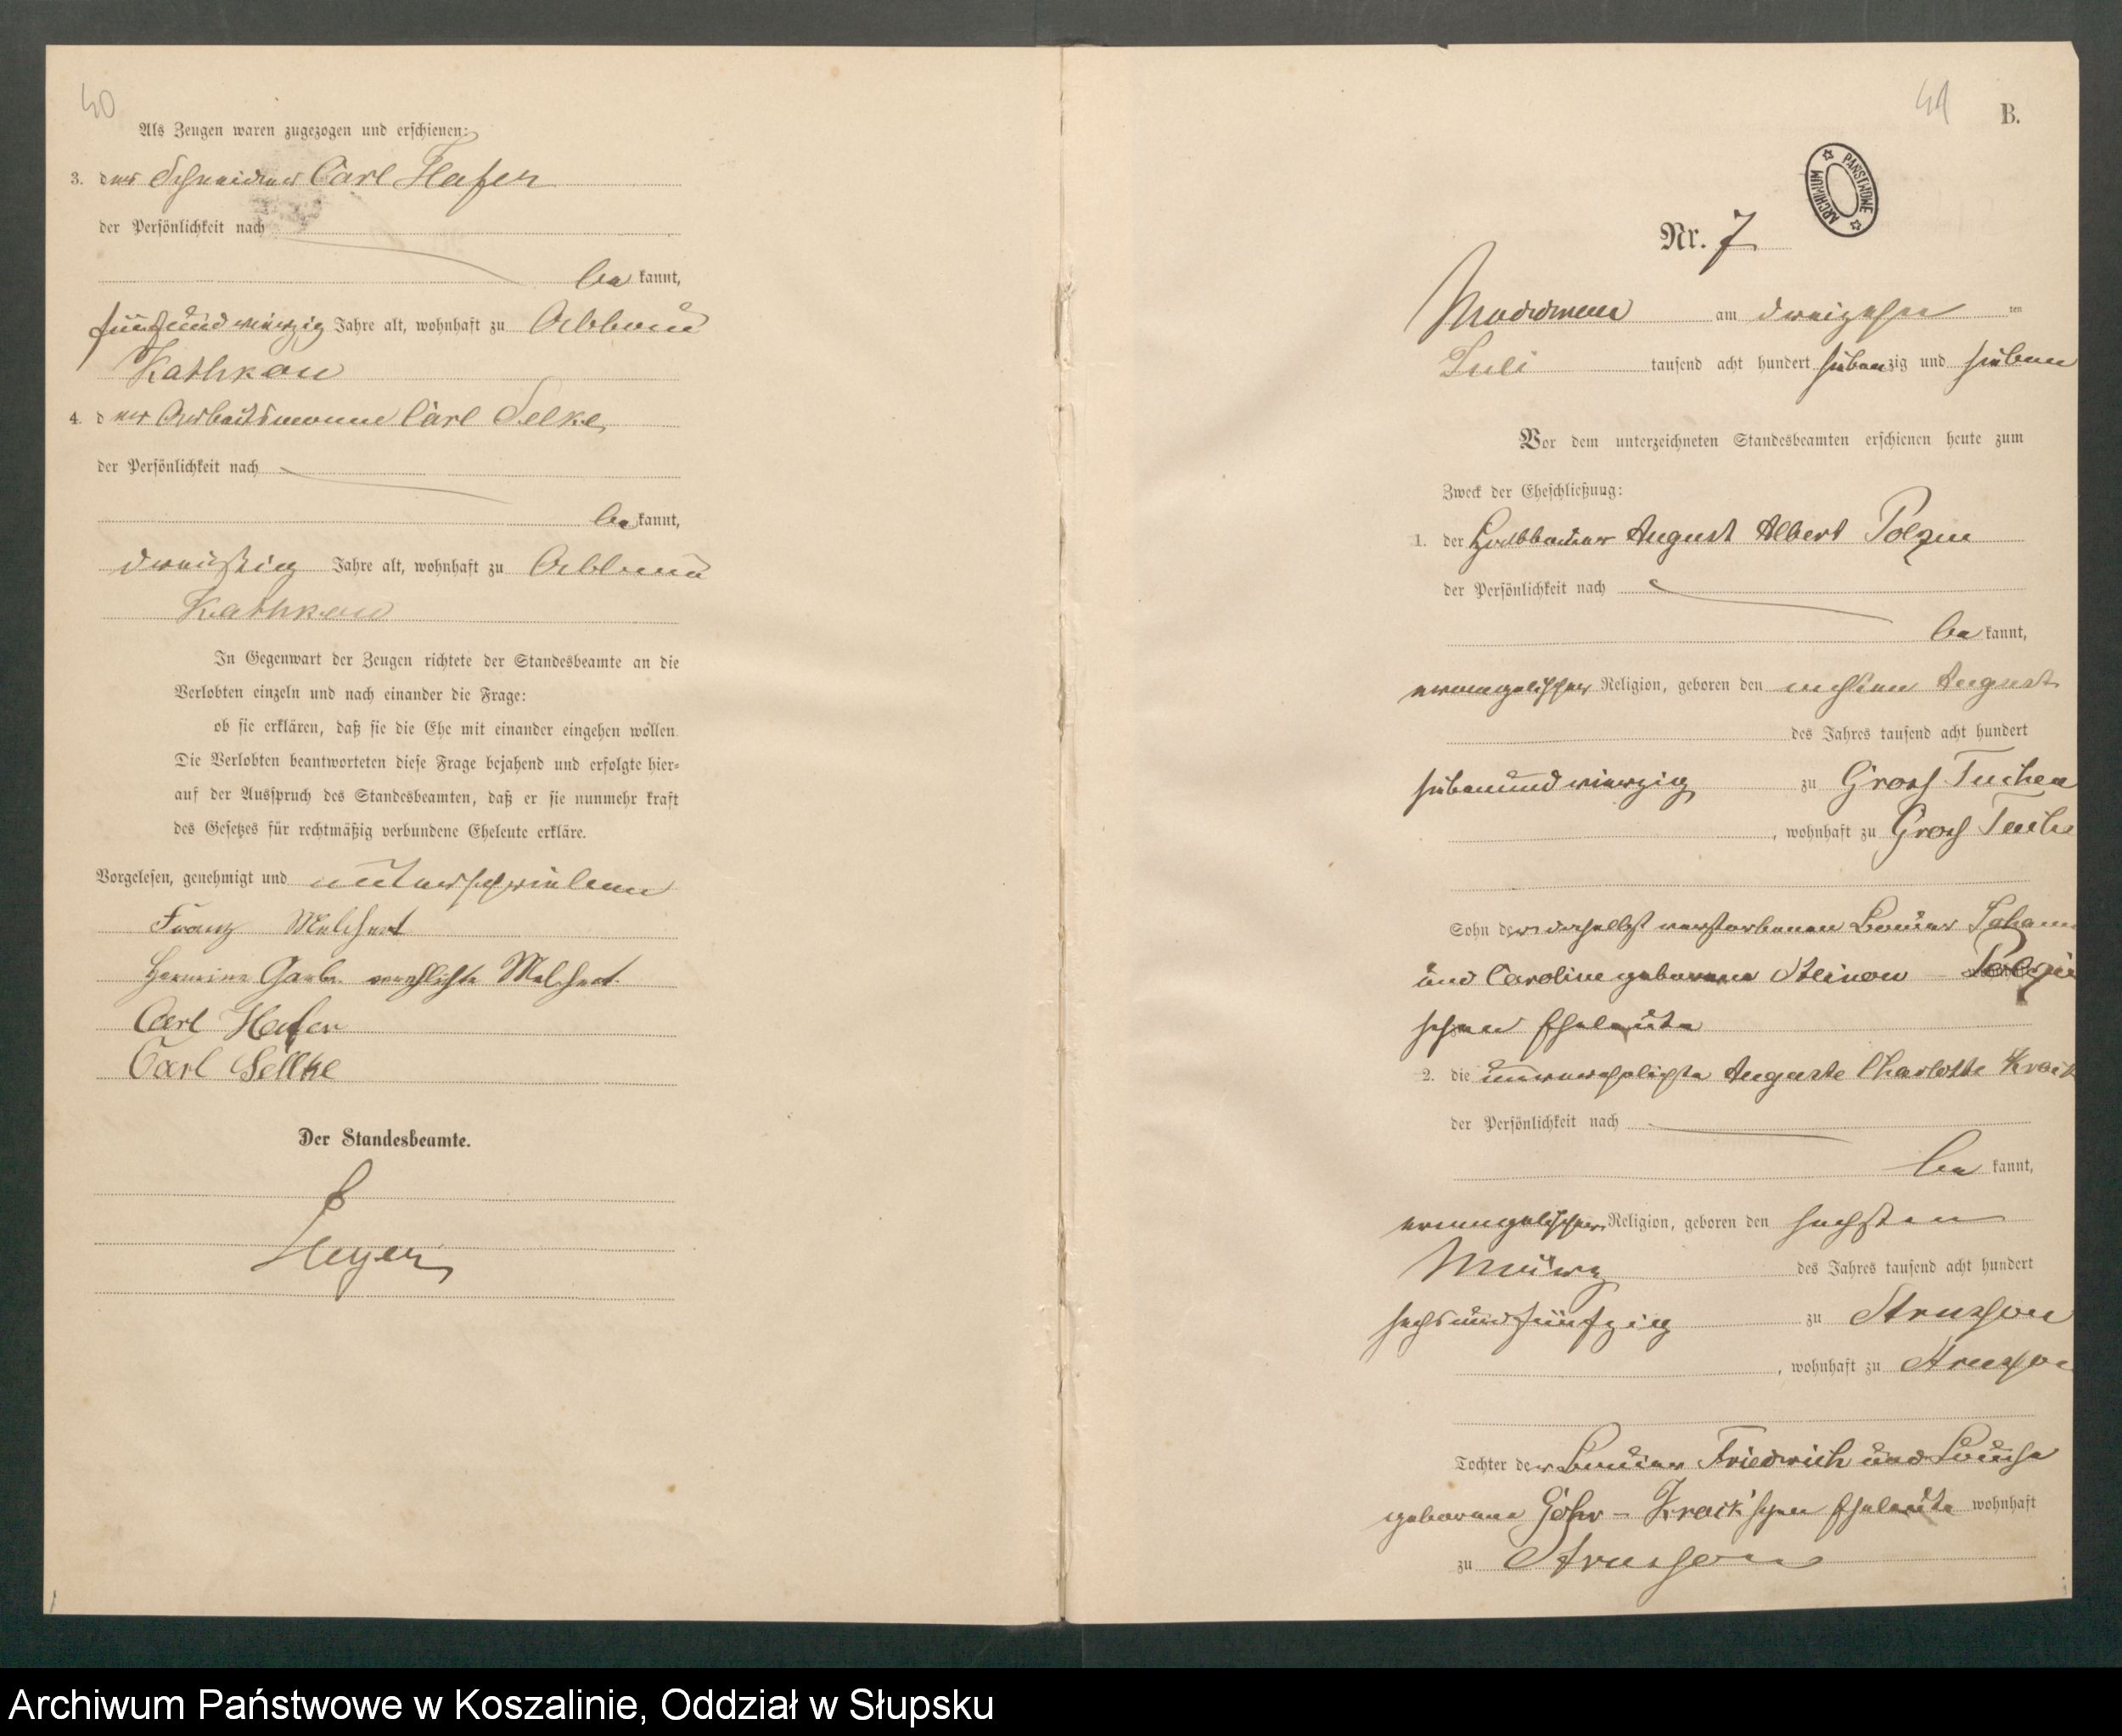 40
Als Zeugen waren zugezogen und erschienen:
3. der Schneider Carl Hafer
der Persönlichkeit nach
be kannt,
fünfundvierzig Jahre alt, wohnhaft zu Abbau
Kathkow
4. der Arbeitsmann Carl Selke
der Persönlichkeit nach
be kannt,
dreißig Jahre alt, wohnhaft zu Abbau
Kathkow
In Gegenwart der Zeugen richtete der Standesbeamte an die
Verlobten einzeln und nach einander die Frage:
ob sie erklären, daß sie die Ehe mit einander eingehen wollen.
Die Verlobten beantworteten diese Frage bejahend und erfolgte hier-
auf der Ausspruch des Standesbeamten, daß er sie nunmehr kraft
des Gesetzes für rechtmäßig verbundene Eheleute erkläre.
Vorgelesen, genehmigt und unterschrieben
Franz Melchert
Hermine verehlichte Melchert
Carl Hafer
Carl Sellke
Der Standesbeamte.
Heyer
41
B.
ARCHIWUM PAŃSTWOWE
Nr. 7
am dreizehn ten
Juli tausend acht hundert siebenzig und sieben
Vor dem unterzeichneten Standesbeamten erschienen heute zum
Zweck der Eheschließung:
1. der Halbbauer August Albert Polzin
der Persönlichkeit nach
be kannt,
evangelischer Religion, geboren den achten August
des Jahres tausend acht hundert
siebenundvierzig zu Gross Tuchen
, wohnhaft zu Gross Tuche
Sohn der daselbst verstorbenen Bauer Johann
und Caroline geborene Steinow - Polzin
schen Eheleute
2. die unverehelichte Auguste Charlotte Krack
der Persönlichkeit nach
be kannt,
evangelischer Religion, geboren den sechsten
März des Jahres tausend acht hundert
sechsundfünfzig zu Strussow
, wohnhaft zu Strussow
Tochter der Bauer Friedrich und Louise
geborene Göhr - Krack'schen Eheleute wohnhaft
zu Strussow
Archiwum Państwowe w Koszalinie, Oddział w Słupsku